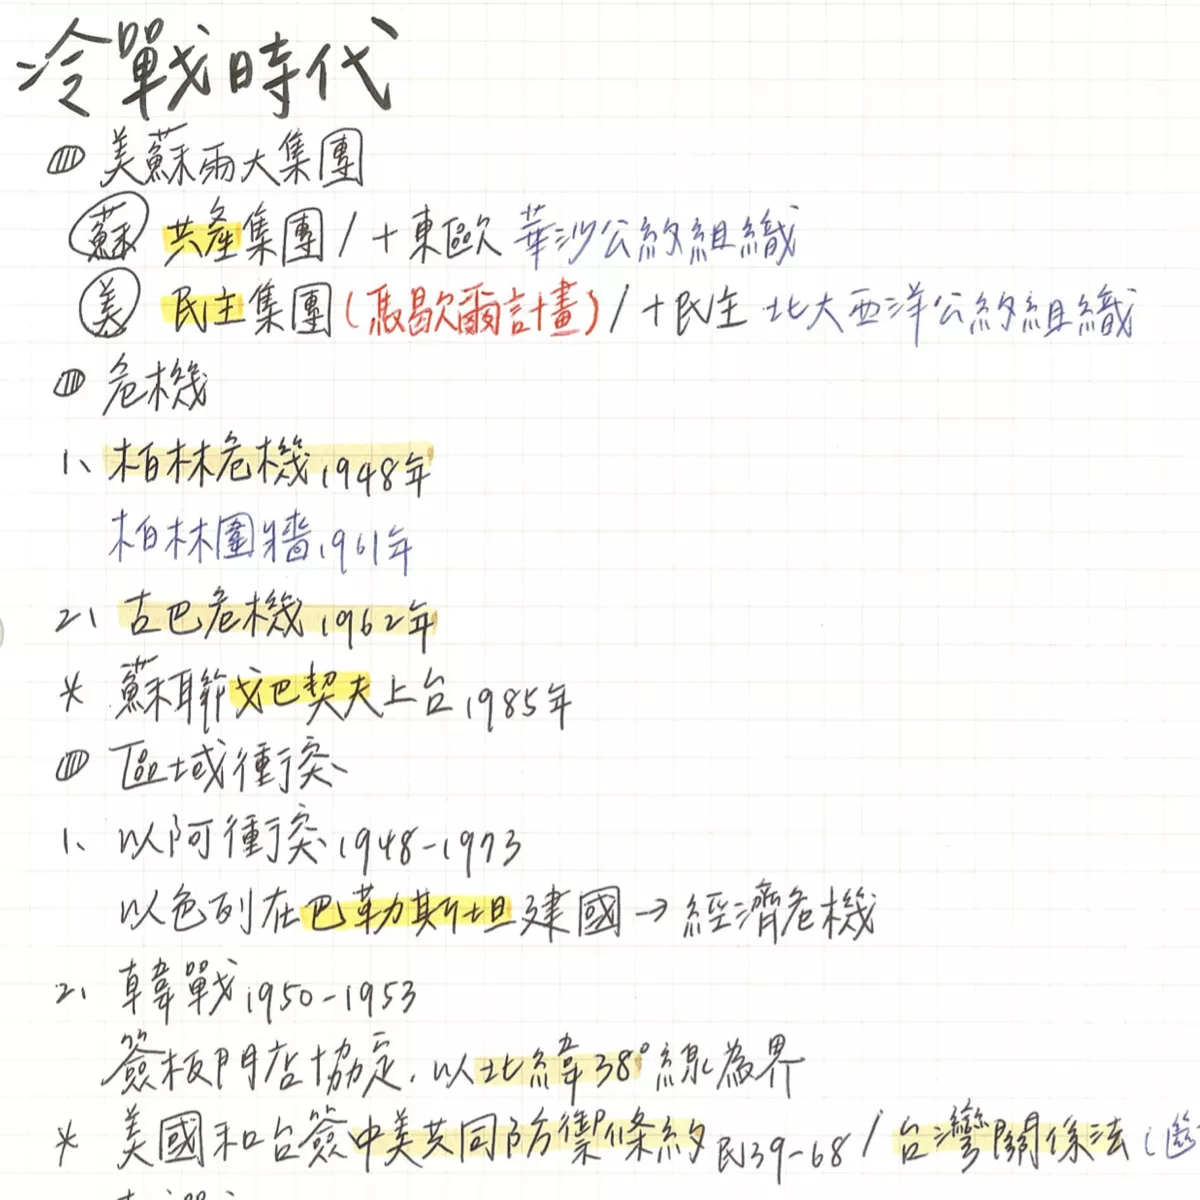 冷戰時代
美蘇兩大集團
蘇 共產集團/+東歐 華沙公約組織
美 民主集團(馬歇爾計畫)/+民主 北大西洋公約組織
危機
1、柏林危機1948年
柏林圍牆1961年
2、古巴危機1962年
* 蘇聯戈巴契夫上台1985年
區域衝突
1、以阿衝突1948-1973
以色列在巴勒斯坦建國→經濟危機
2、韓戰1950-1953
簽板門店協定,以北緯38°線為界
* 美國和台簽中美共同防禦條約民39-68/台灣關係法(